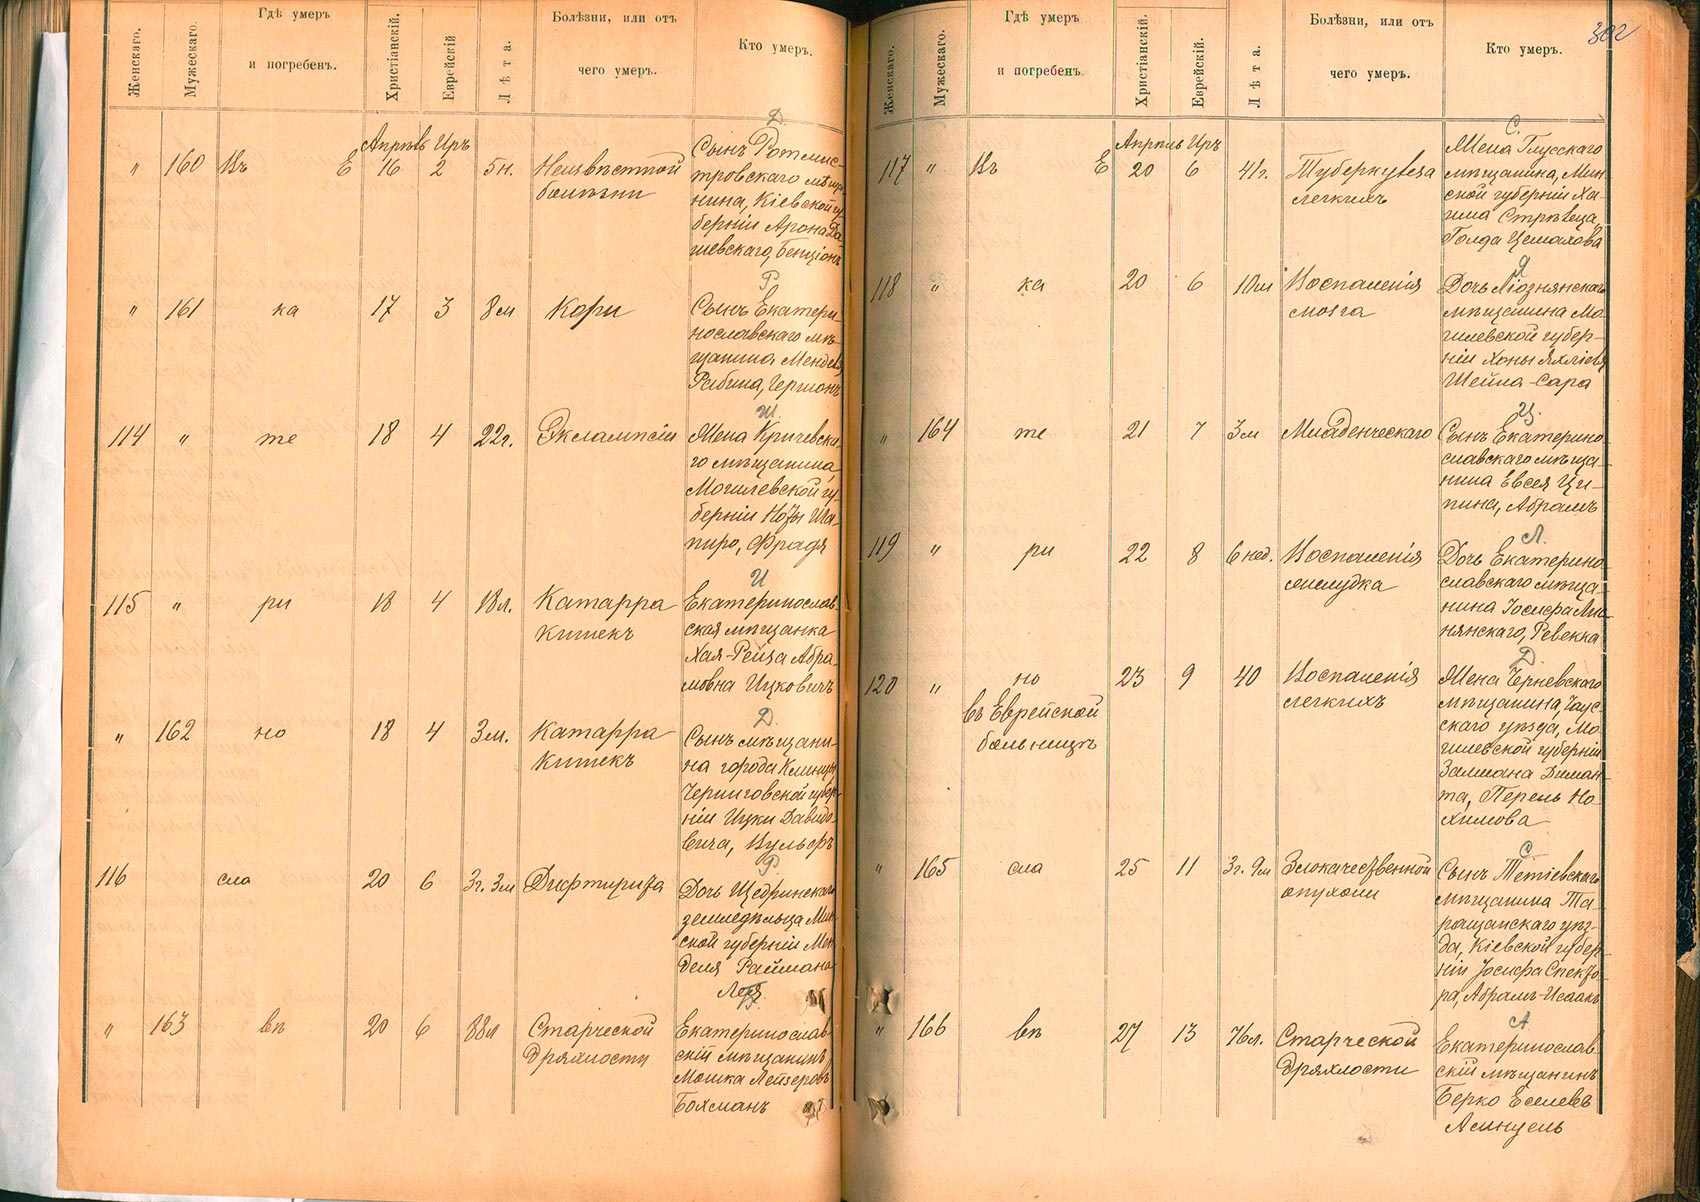 Женскаго.
Мужескаго.
Гдѣ умеръ
и погребенъ.
Христіанскій.
Еврейскій
Лѣта.
Болѣзни, или отъ
чего умеръ.
Кто умеръ.
Апрѣль Иръ
" 160 Въ Е 16 2 5н. Неизвѣстной
болѣзни
Д
Сынъ Ротмис-
тровскаго мѣща
нина, Кіевской гу
берніи Арона Да
шевскаго, Бенціонъ
" 161 ка 17 3 8м Кори
Р
Сынъ Екатери
нославскаго мѣ-
щанина Менделя
Рабина, Гершонъ
114 " те 18 4 22г. Эклампсіи
Ш
Жена Кричевска-
го мѣщанина
Могилевской гу-
берніи Ноты Ша-
пиро, Фрадя
115 " ри 18 4 18л. Катарра
кишекъ
И
Екатеринослав
ская мѣщанка
Хая-Рейза Абра
мовна Ицковичъ
" 162 но 18 4 3м. Катарра
кишекъ
Д.
Сынъ мѣщани-
на города Клинцы
Черниговской губер-
ніи Ицки Давидо-
вича, Вульфъ
116 сла 20 6 3г. 3м Дифтирита
Р
Дочь Щедринскаго
земледѣльца Мин
ской губерніи Мен
деля Раймана
Лея
" 163 вѣ 20 6 88л Старческой
дряхлости
Б.
Екатеринослав
скій мѣщанинъ
Мошка Лейзеровъ
Бохманъ
302
Женскаго.
Мужескаго.
Гдѣ умеръ
и погребенъ.
Христіанскій.
Еврейскій.
Лѣта.
Болѣзни, или отъ
чего умеръ.
Кто умеръ.
Апрѣль Иръ
117 " Въ Е 20 6 41г. Туберкулеза
легкихъ
С.
Жена Глусскаго
мѣщанина, Мин
ской губерніи Ха-
има Стрѣльца,
Голда Цемахова
118 " ка 20 6 10м Воспаленія
мозга
Я
Дочь Лiознянскаго
мѣщанина Мо-
гилевской губер-
ніи Хоны Яхліеля
Шейла-Сара
" 164 те 21 7 3м Младенческаго
Ц.
Сынъ Екатерино-
славскаго мѣща-
нина Евсея Ци-
пина, Абрамъ
119 " ри 22 8 6 нед. Воспаленія
желудка
Л.
Дочь Екатерино-
славскаго мѣща-
нина Іосифа
нянскаго, Ревекка
120 " но 23 9 40 Воспаленія
легкихъ
въ Еврейской
больницѣ
Д.
Жена Черневскаго
мѣщанина, Чаус-
скаго уѣзда, Мо-
гилевской губерніи
Залмана Диман-
та, Перель Но-
химова
" 165 сла 25 11 3г. 9м Злокачественной
опухоли
С
Сынъ Тетіевскаго
мѣщанина Та-
ращанскаго уѣз-
да, Кіевской губер-
ніи Іосифа Спекто-
ра, Абрамъ-Исаакъ
" 166 вѣ 27 13 76л. Старческой
дряхлости
А
Екатеринослав
скій мѣщанинъ
Берко Еселевъ
Аминцель